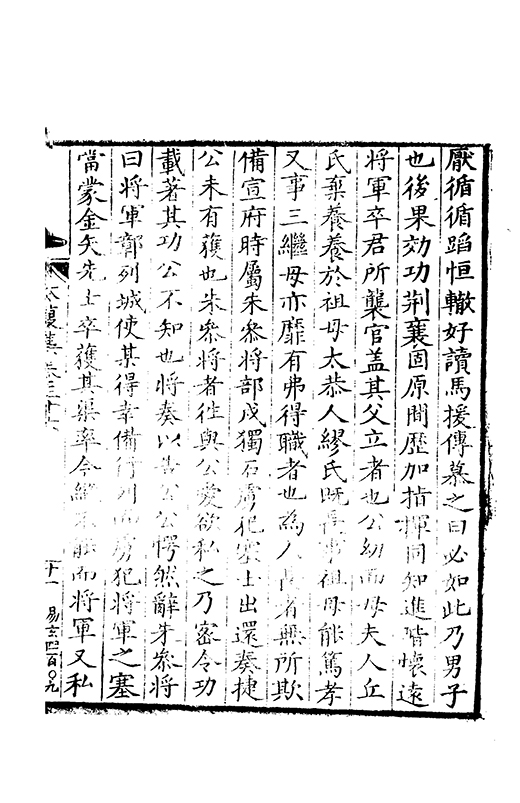 厭循循蹈恒轍好讀馬援傳慕之曰必如此乃男子
也後果効功荆襄固原間歷加指揮同知進階懷遠
將軍卒君所襲官盖其父立者也公幼而母夫人丘
氏棄養養於祖母太恭人繆氏既長事祖母能篤孝
又事三繼母亦靡有弗得職者也為人長者無所欺
備宣府時屬朱參將部戍獨石虜犯塞士出還奏捷
公未有獲也朱參將者徃與公愛欲私之乃密令功
載著其功公不知也將奏以告公公愕然辭朱參將
曰將軍鄣列城使某得幸備行列而虜犯將軍之塞
當蒙金矢先士卒獲其渠率今纔不能而將軍又私
太復集卷三十六
十一
易玄四百〇九